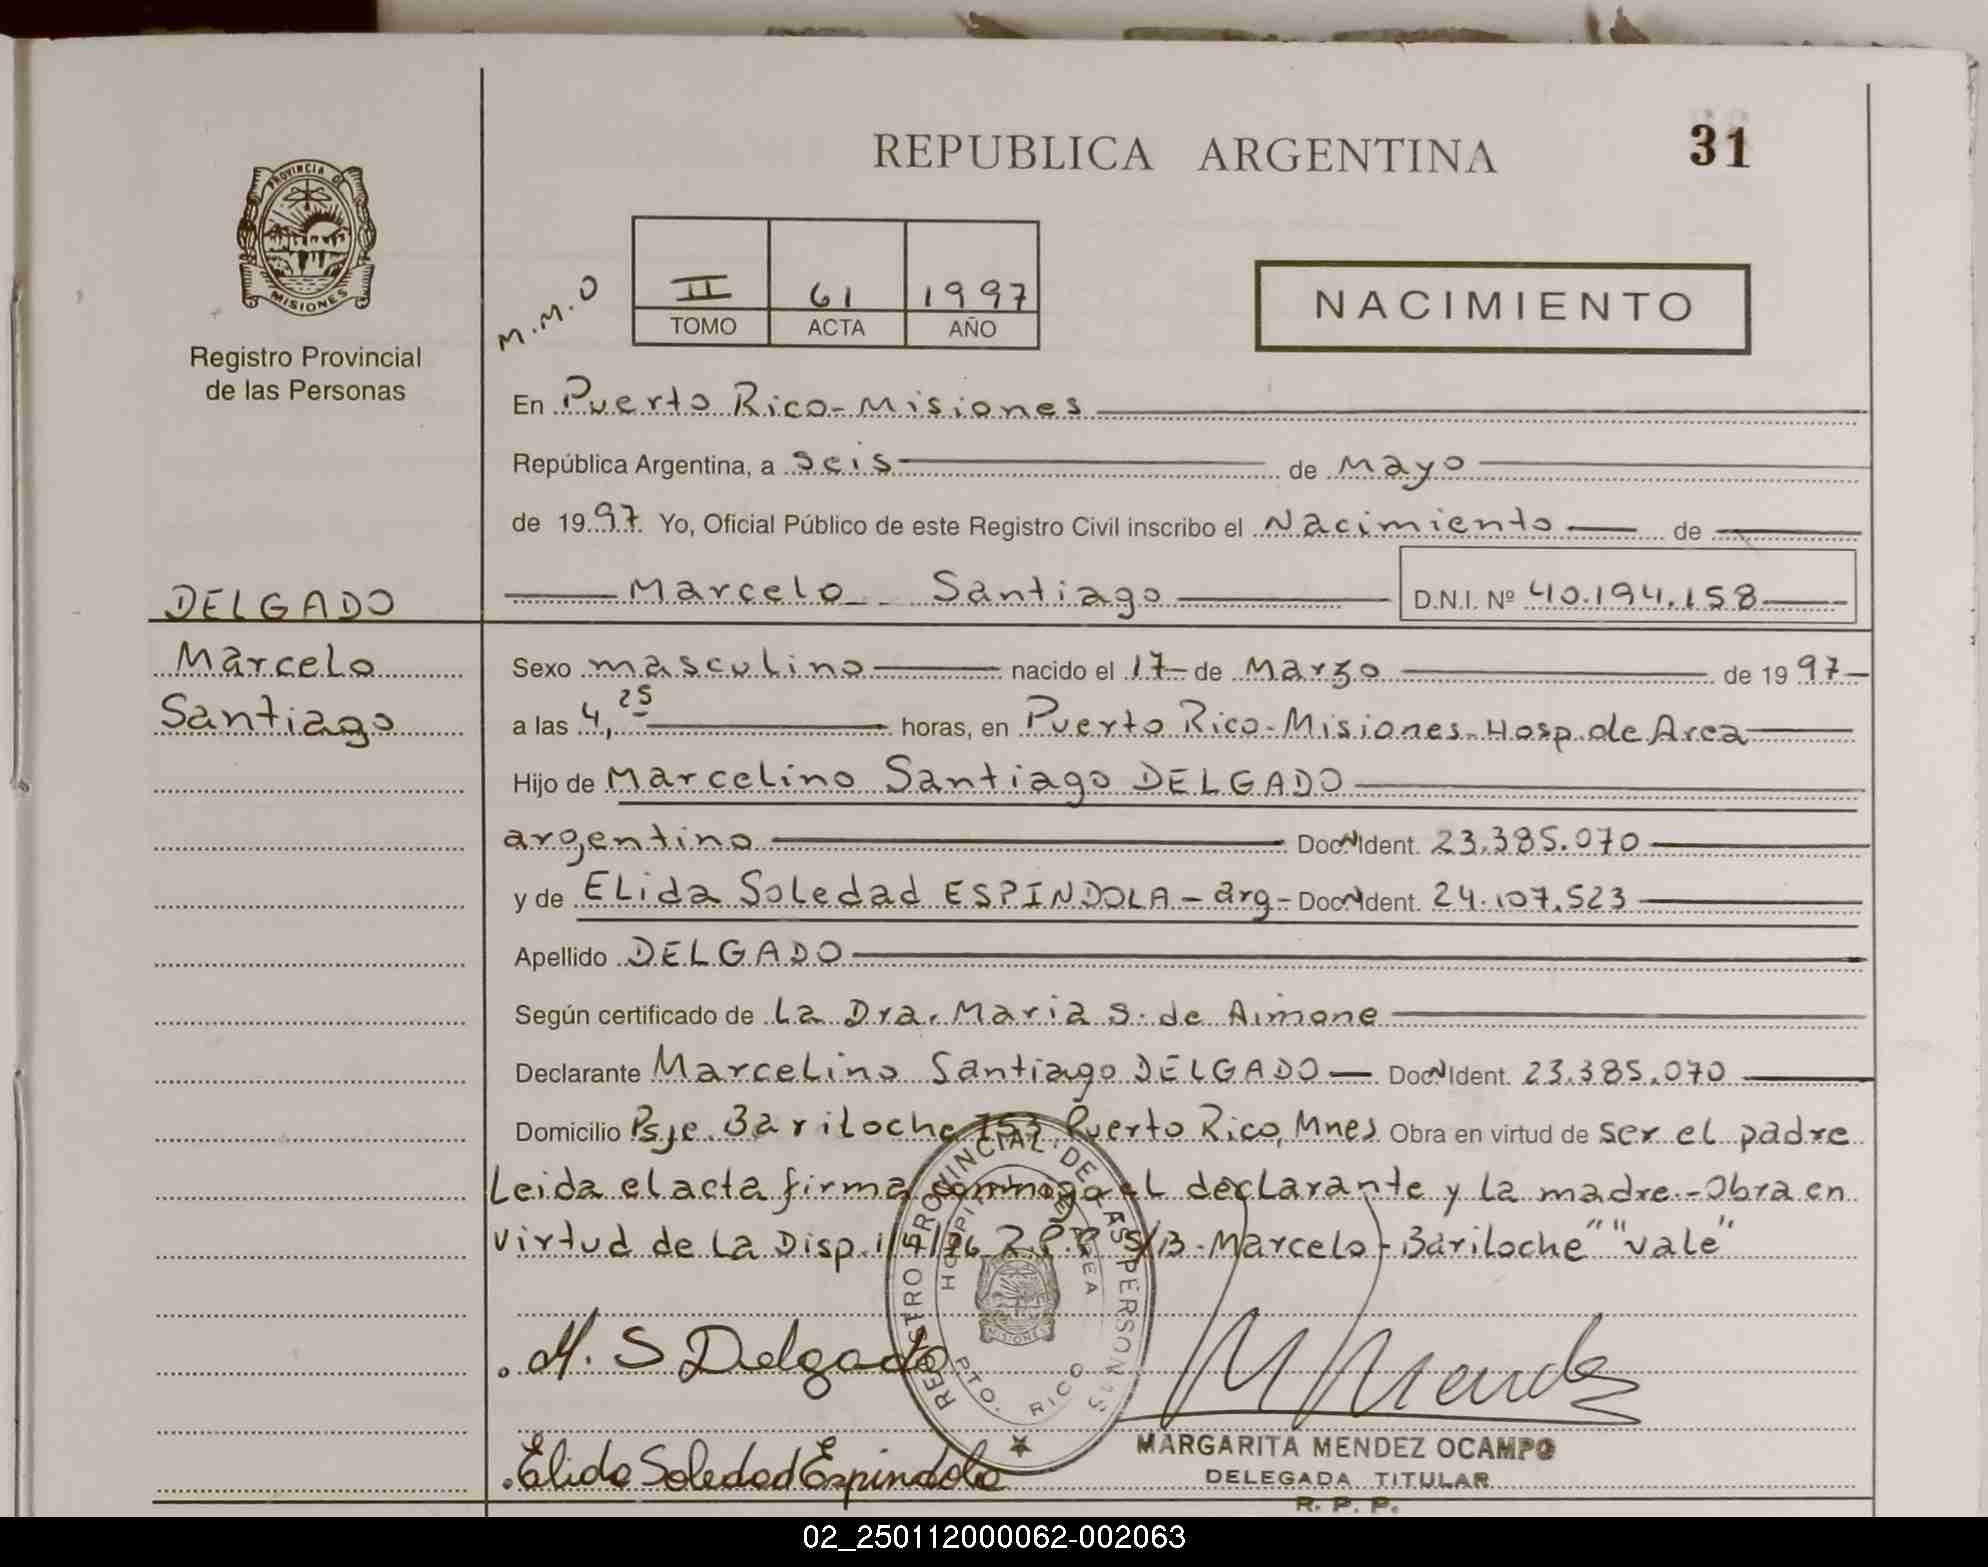 REPUBLICA ARGENTINA
31
PROVINCIA DE
MISIONES
Registro Provincial
de las Personas
M.M.O
II 61 1997
TOMO ACTA AÑO
NACIMIENTO
En Puerto Rico-Misiones
República Argentina, a seis de Mayo
de 1997 Yo, Oficial Público de este Registro Civil inscribo el Nacimiento de
DELGADO
Marcelo Santiago D.N.I. Nº 40.194.158
Marcelo
Santiago
Sexo masculino nacido el 17 de Marzo de 1997
a las 4,25 horas, en Puerto Rico-Misiones-Hosp.de Area
Hijo de Marcelino Santiago DELGADO
argentino Doc Ident. 23.385.070
y de ELida Soledad ESPINDOLA - arg- Doc Ident. 24.107.523
Apellido DELGADO
Según certificado de La Dra. Maria S. de Aimone
Declarante Marcelino Santiago DELGADO Doc Ident. 23.385.070
Domicilio Psje. Bariloche 153, Puerto Rico, Mnes Obra en virtud de ser el padre
Leida el acta firma conmigo el declarante y la madre.-Obra en
virtud de la Disp. R.P.P. S/B-Marcelo-Bariloche" "vale"
REGISTRO PROVINCIAL DE LAS PERSONAS
HOSPITAL AREA
MISIONES
PTO. RICO
M. S Delgado
M Mendez
Elida Soledad Espindola
MARGARITA MENDEZ OCAMPO
DELEGADA TITULAR
R. P. P.
02_250112000062-002063